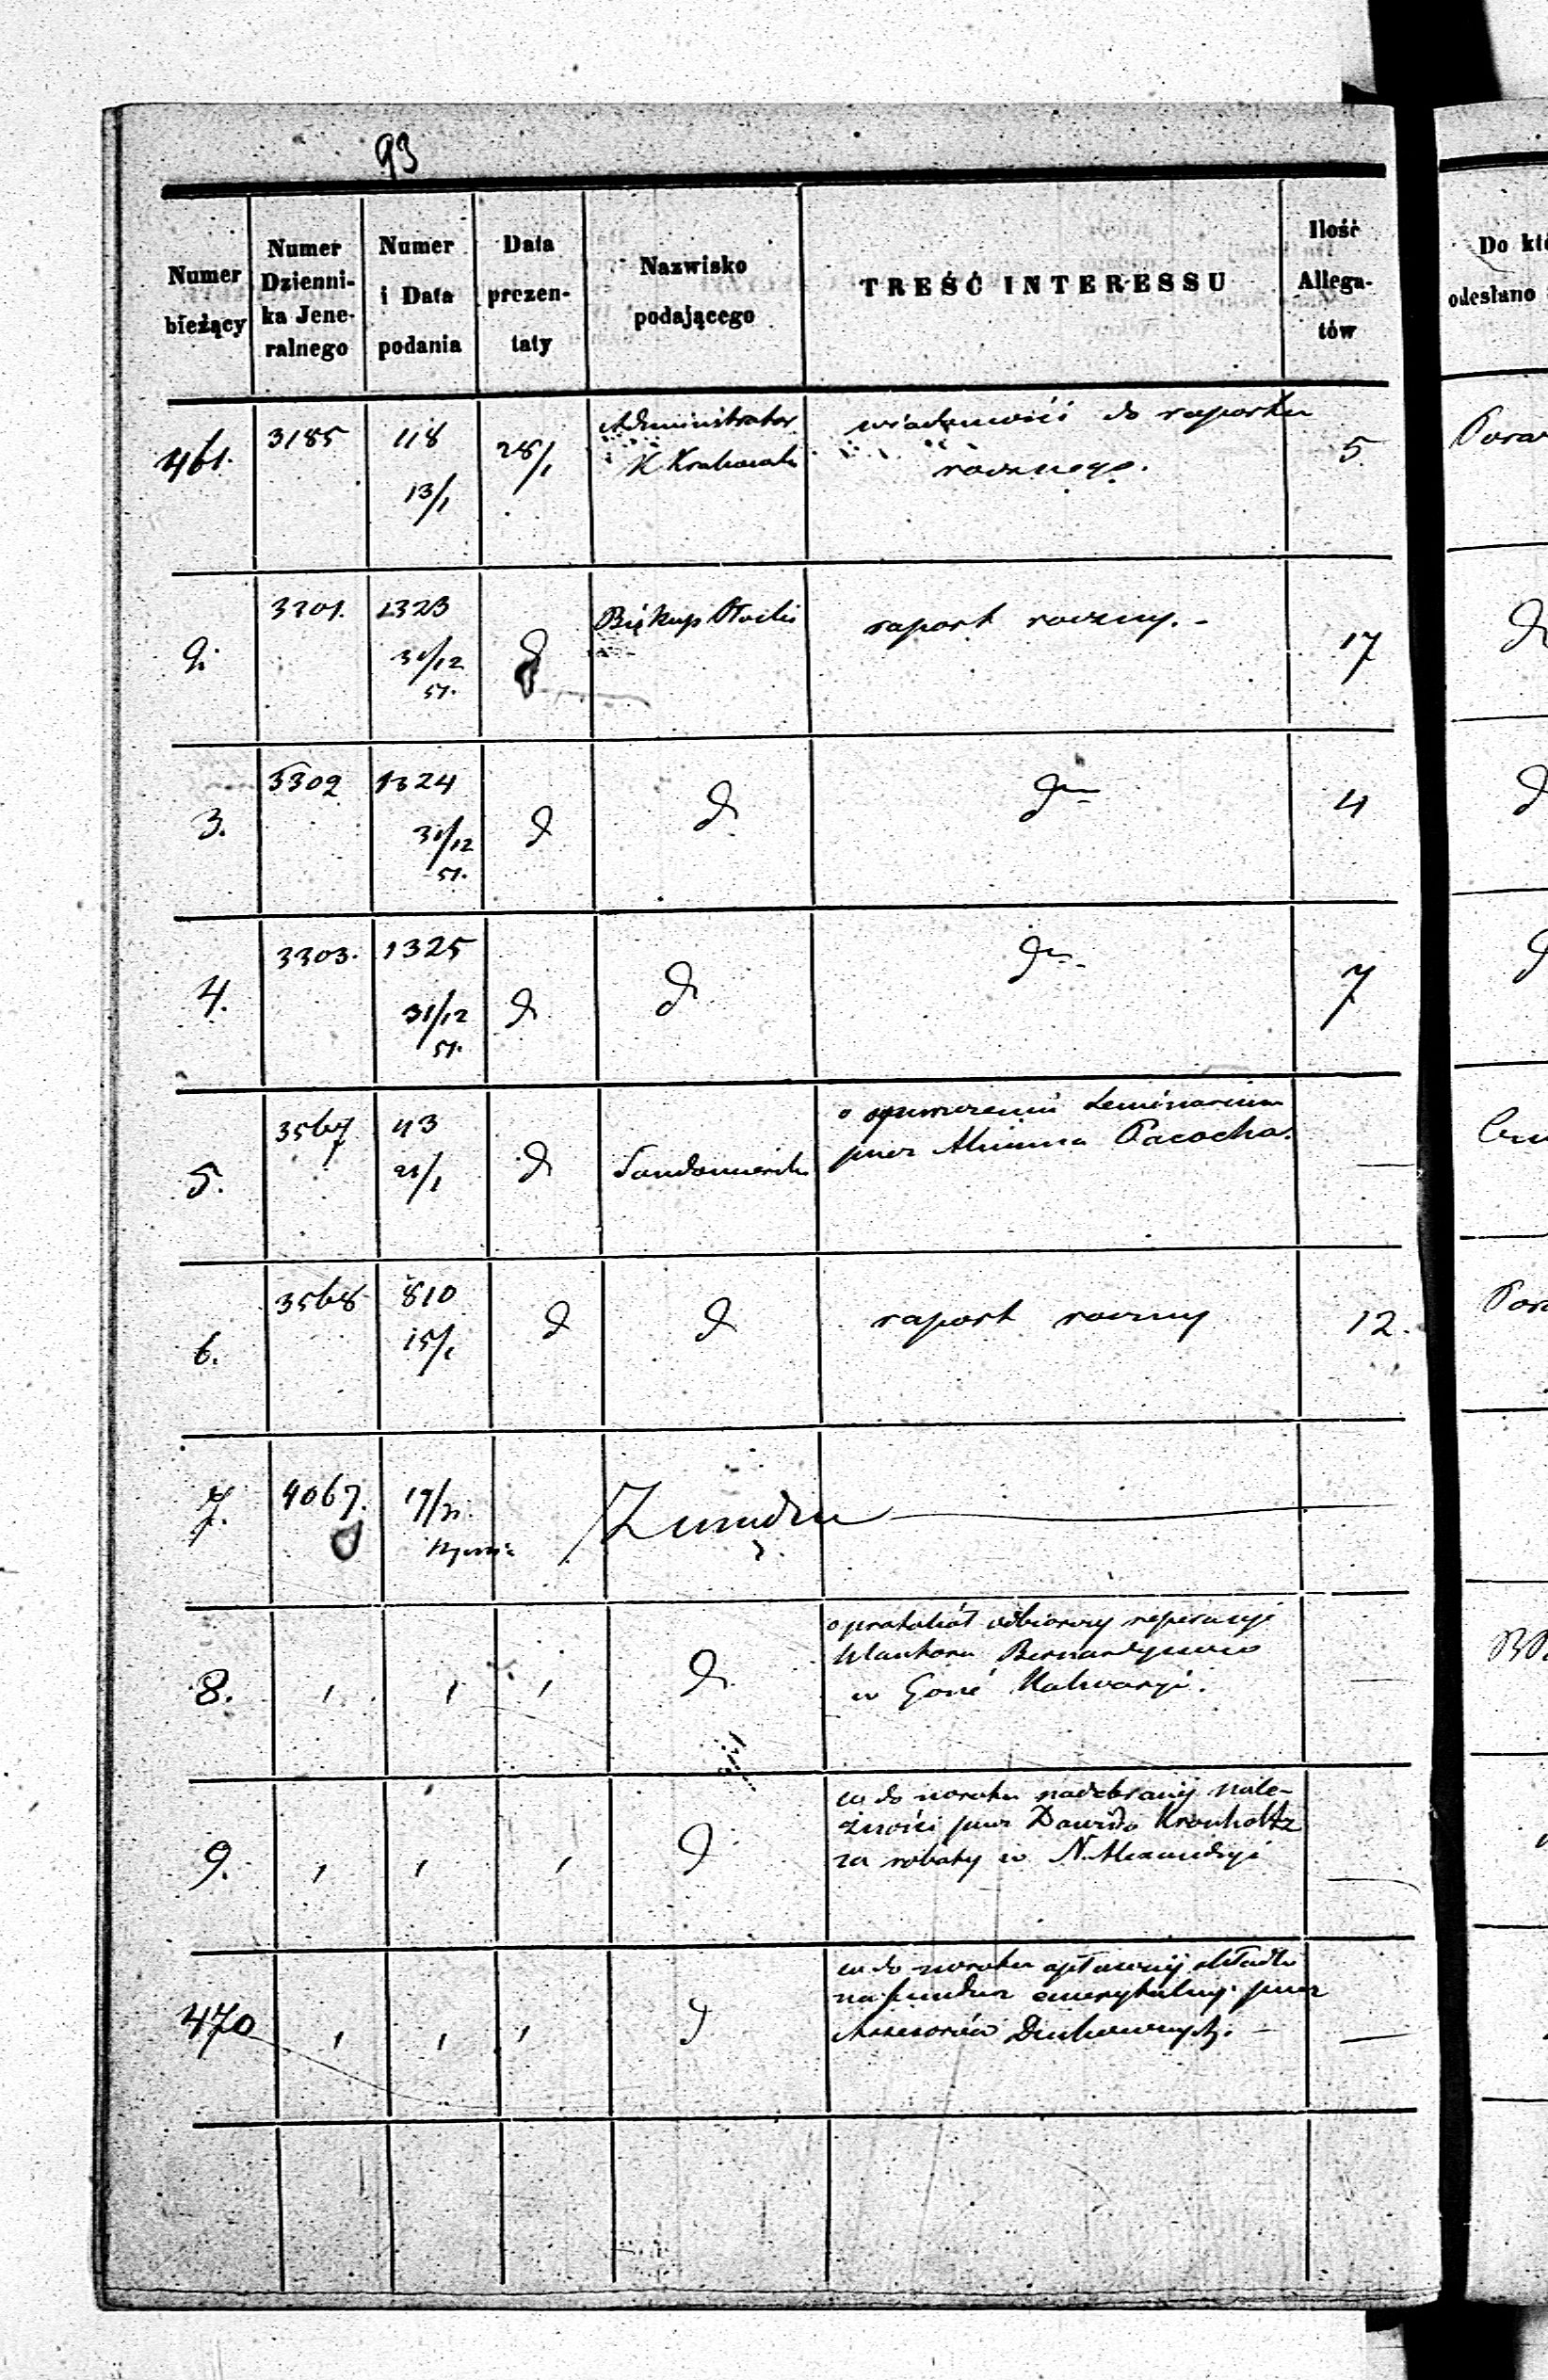 93
Numer bieżący
Numer Dzienni- ka Jene- ralnego
Numer i Data podania
Data prezen- taty
Nazwisko podającego
TREŚĆ INTERESSU
Ilość Allega- tów
Do któ
odesłano
461. 3185 118 13/1 28/1 Administrator wiadomości do raportu 5
rocznego.
2. 3301. 1323 31/12 51. d Biskup raport roczny. - 17
3. 3302 1324 31/12 51. d d dto 4
4. 3303. 1325 31/12 51. d d dto 7
5. 3567 43 21/1 d Sandomierski o opuszczeniu Seminarium
przez Alumna Pacocha. —
6. 3568 810 15/1 d d raport roczny 12.
7. 4067. 17/ Z urzędu
8. , , , d o protokół odbiorczy reperacyi
klasztoru Bernardynów
w Górze Kalwaryi. —
9. , , , d co do zwrotu nadebranej nale-
żności przez Dawida Kronholtz
za roboty w N. Alexandryi —
470 , , , d co do zwrotu składki
na fundusz emerytalny przez
Assesorów Duchownych. — —